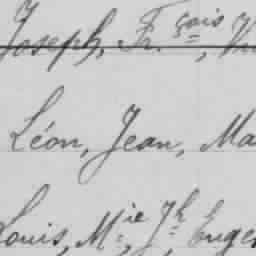 Joseph, Fr.çois,
Léon, Jean, Ma
Louis, M.ie, J.h, Euge